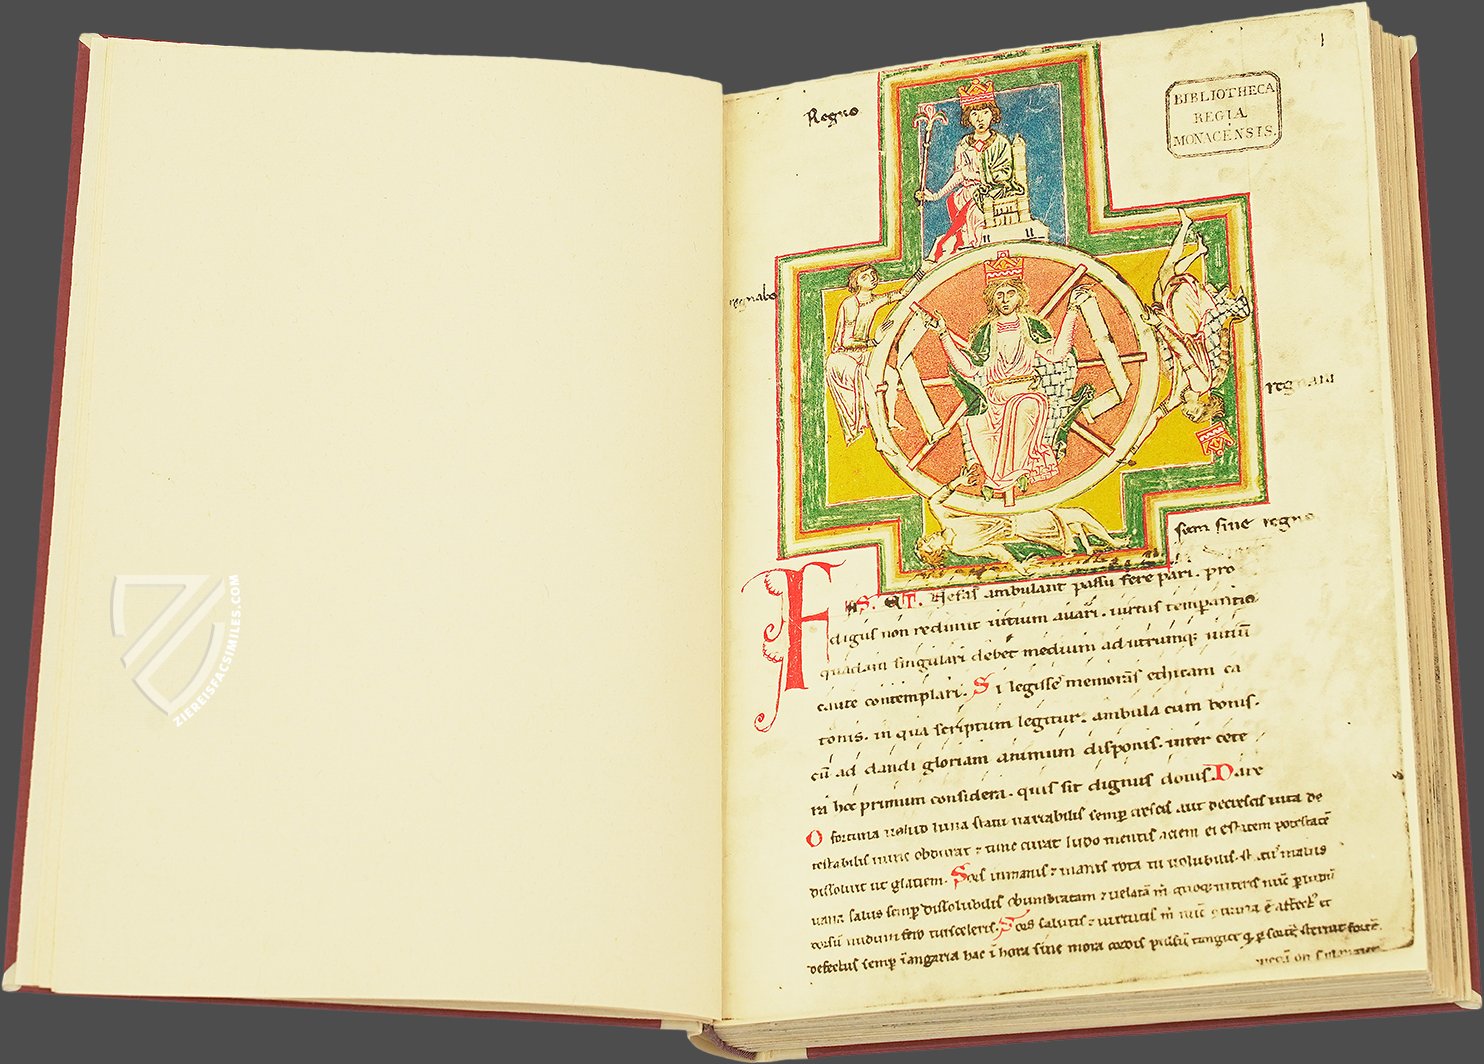 1
BIBLIOTHECA
REGIA
MONACENSIS.
Regno
regnabo
regnaui
sum sine regno
F
AS. & T. Nefas ambulant passu fere pari. pro
digus non redimit uitium auari. uirtus temperantia
quadam singulari debet medium ad utrumque uitiū
caute contemplari. Si legisse memoras ethicam ca
tonis. in qua scriptum legitur. ambula cum bonis.
cū ad dandi gloriam animum disponis. inter cete
ra hoc primum considera. quis sit dignus donis. Dare
O fortuna uelud luna statu uariabilis semp crescis aut decrescis uita de
testabilis nunc obdurat & tunc curat ludo mentis aciem egestatem potestatē
dissoluit ut glaciem. Sors inmanis & inanis rota tu uolubilis. statꝰ malus
uana salus semp dissolubilis obumbratam & uelatā m quoque niteris nūc p ludū
dorsū nudum fero tui sceleris. Sors salutis & uirtutis m nūc
defectus semp ī angaria hac ī hora sine mora cordis pulsū tangite
ZIEREISFACSIMILES.COM